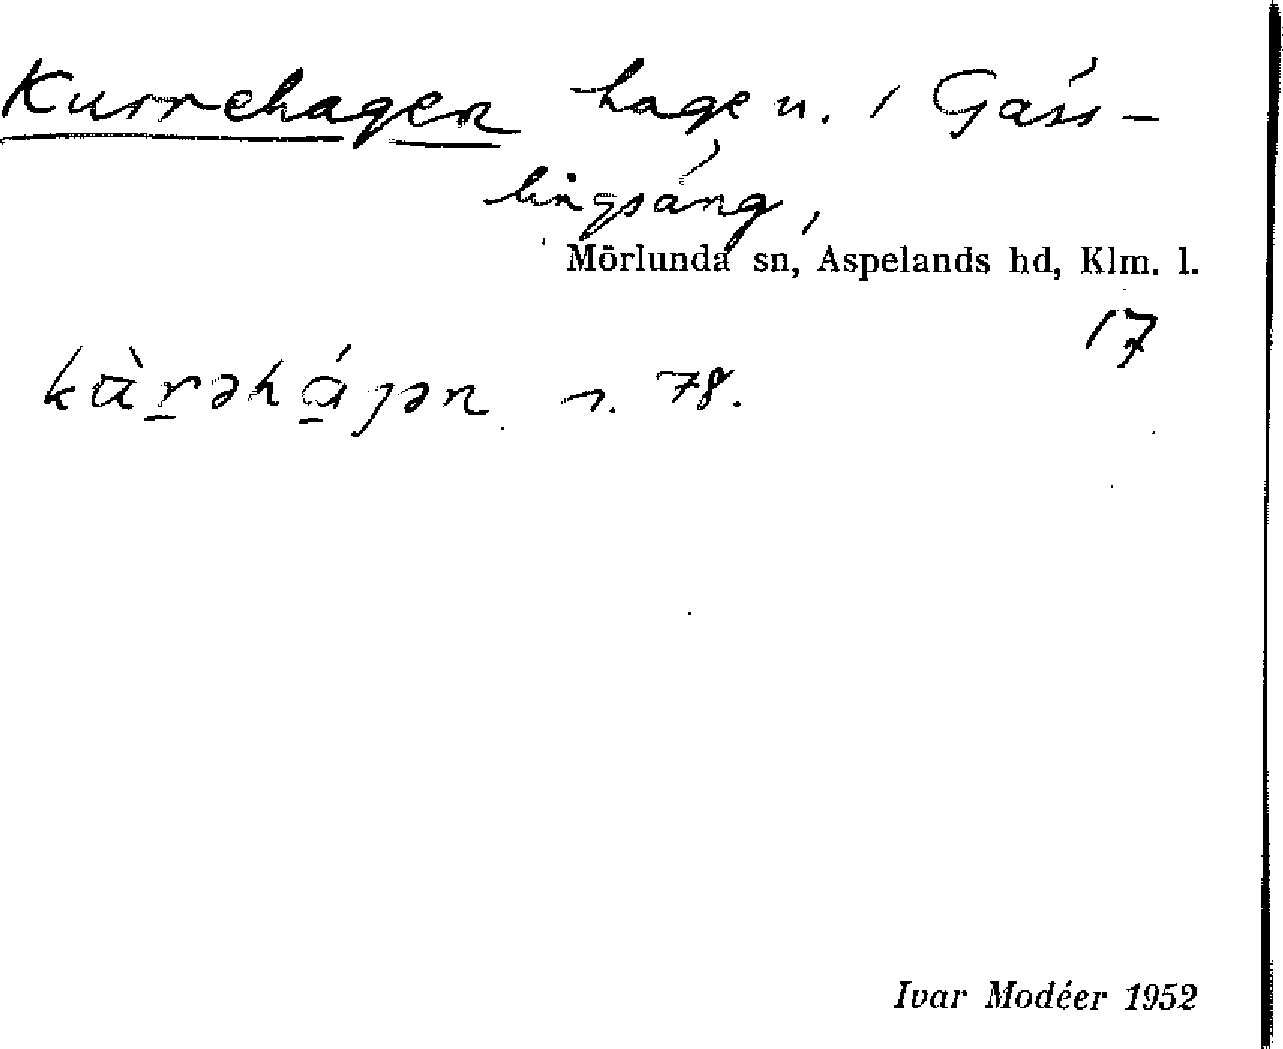 Kurrehagen hage n. i Gäss-
lingsäng,
Mörlunda sn, Aspelands hd, Klm. l.
17
s. 78.
Ivar Modéer 1952